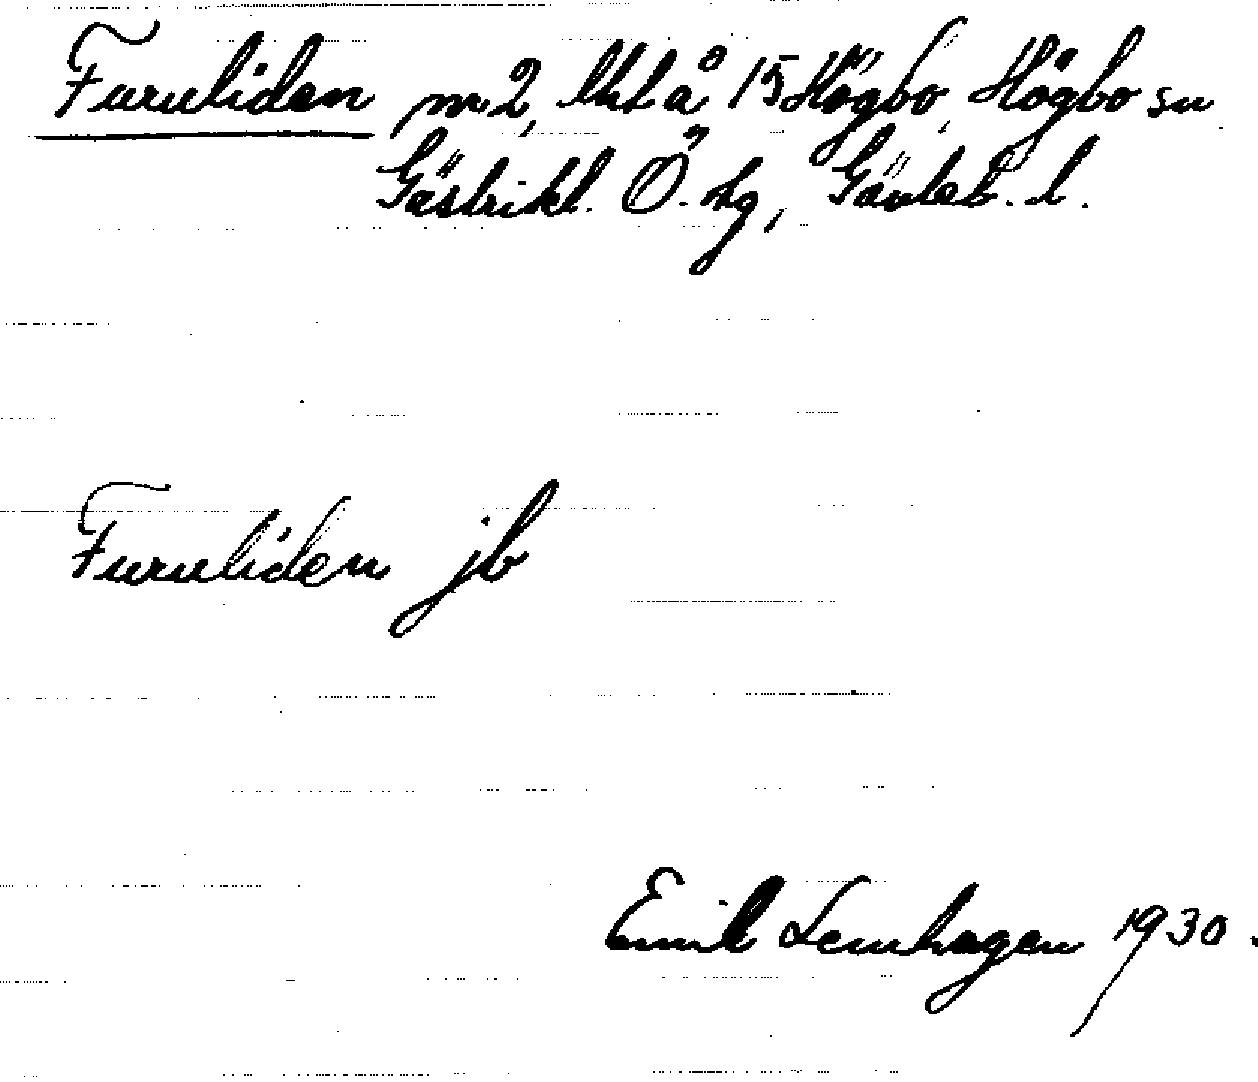 Furuliden nr 2, lht å 15 Högbo, Högbo sn
Gästrikl. Ö. tg, Gävleb. l.
Furuliden jb
Emil Lenhagen 1930.